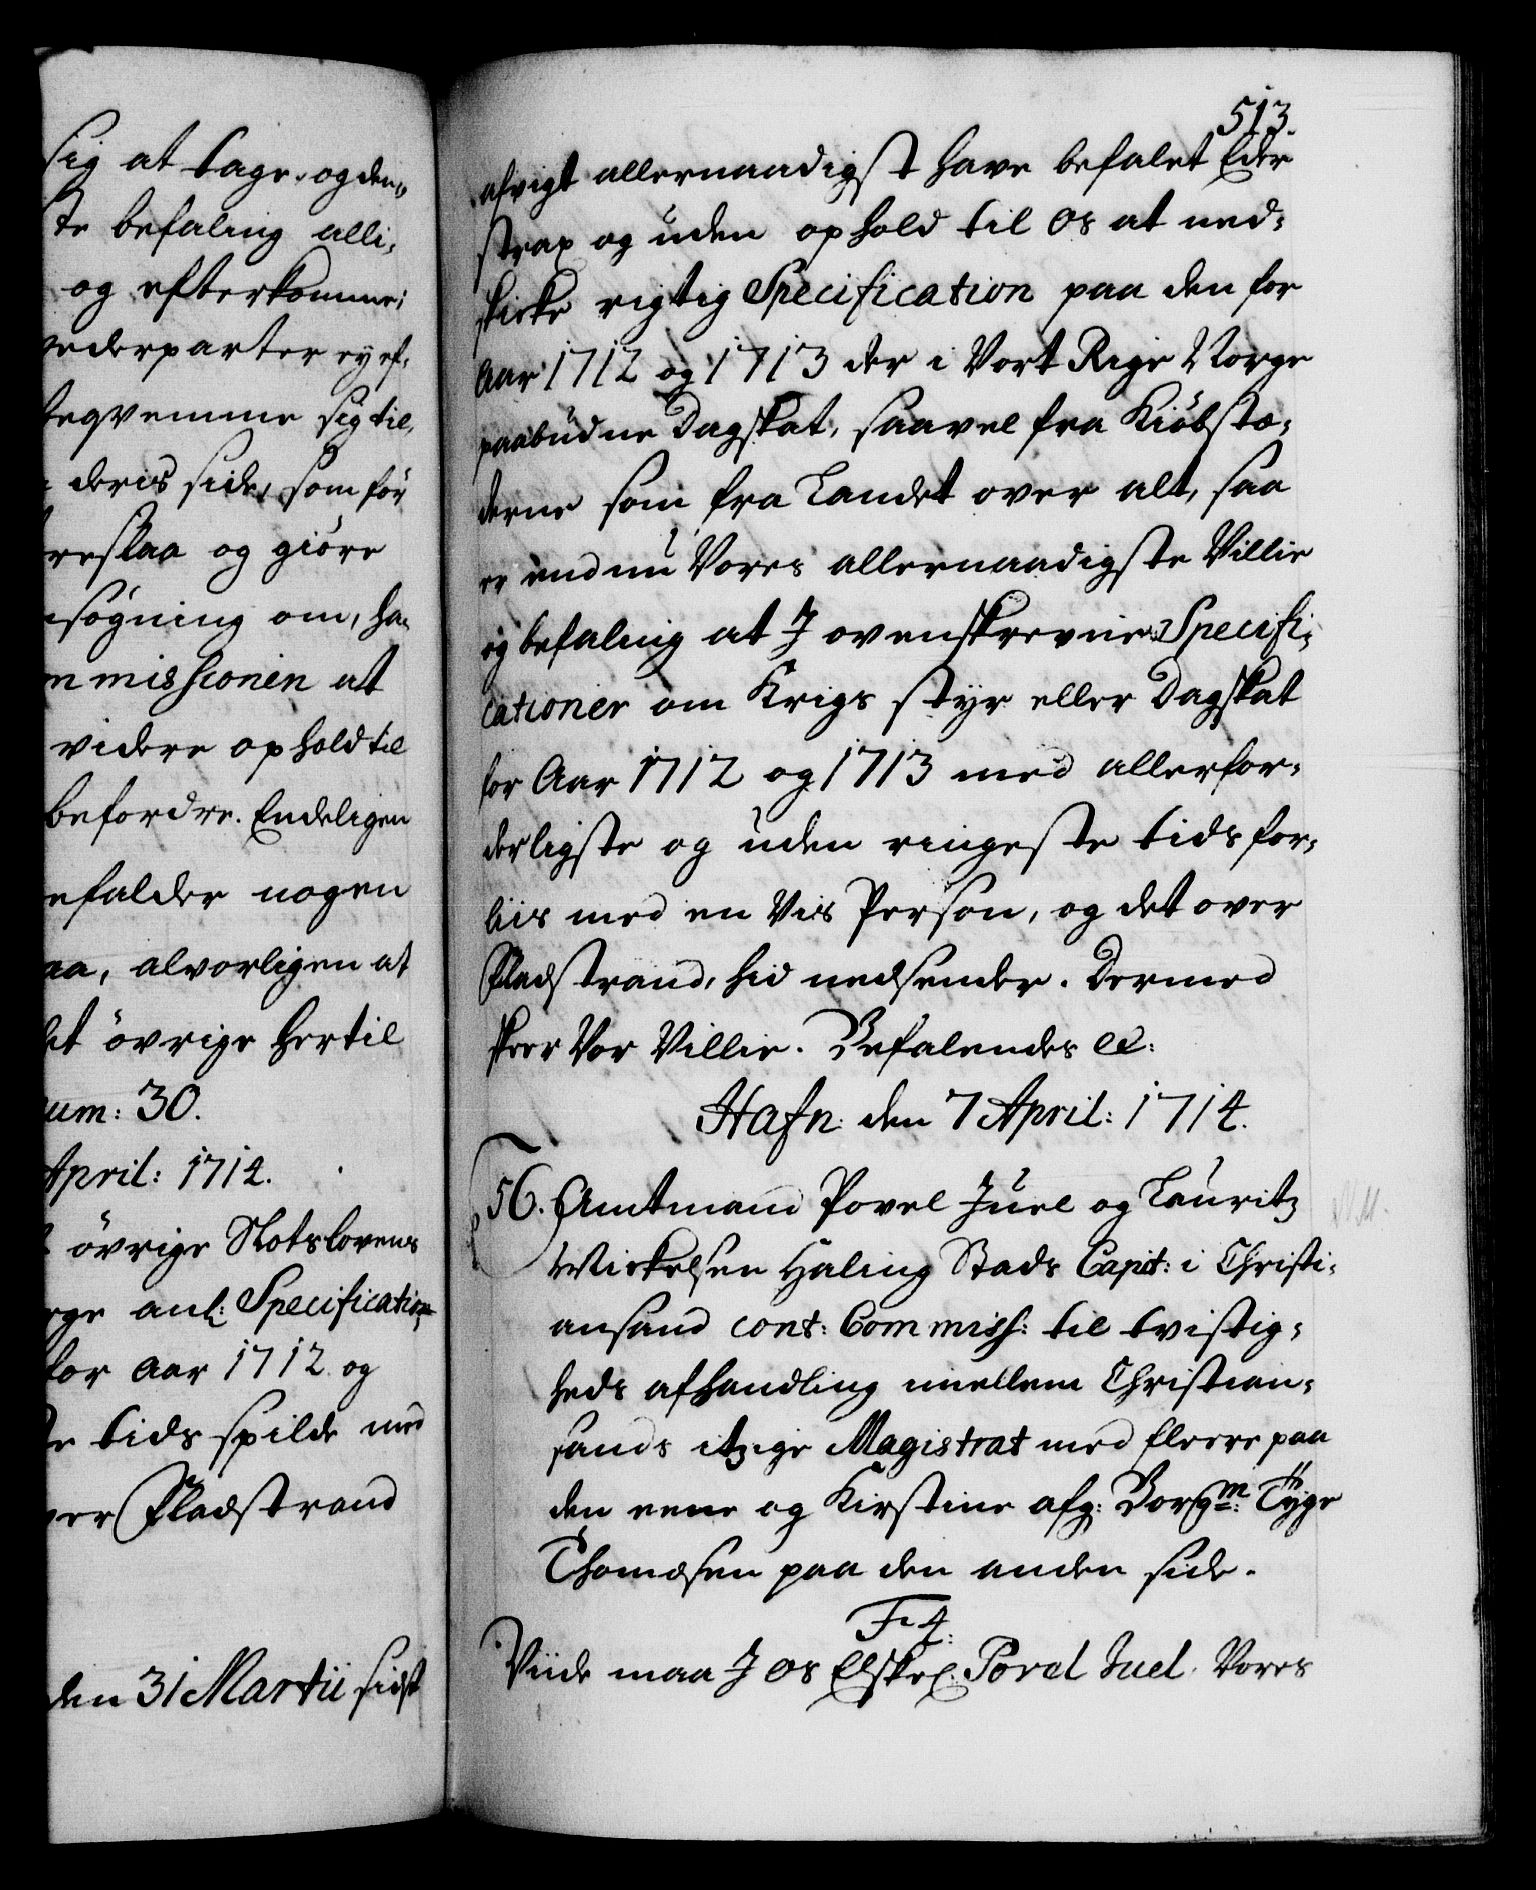 sig at tage, og den
te befaling alli,
og efterkomme;
vederparter ey ef,
beqvemme sig til,
deris side, som for
reslaa og giöre
nsögning om, ha
mmissionen at
videre ophold til
befordre. Endeligen
efalder nogen
aa, alvorligen at
et övrige hertil
um: 30.
April: 1714.
övrige Slotslovens
rge anl: Specification
for Aar 1712 og
tids spilde med
ver Fladstrand
den 31 Martii sidst
513.
afvigt allernaadigst have befalet Eder
strax og uden ophold til os at ned-
skicke rigtig Specification paa den for
Aar 1712 og 1713 der i Vort Rige Norge
paabudne Dagskat, saavel fra Kiöbstæ-
derne som fra Landet over alt, saa
er endnu Vores allernaadigste Villie
og befaling at J ovenskrevne Specifi-
cationer om Krigs styr eller Dagskat
for Aar 1712 og 1713 med allerfor-
derligste og uden ringeste tids for-
liis med en Vis Person, og det over
Fladstrand, hid nedsender. Dermed
skeer Vor Villie. Befalendes etc:
Hafn: den 7 April: 1714.
56. Amtmand Povel Juel og Lauritz
Mickelsen Haling Stads Capit: i Christi-
ansand cont: Commiss: til tvistig-
heds afhandling imellem Christian-
sands itzige Magistrat med fleere paa
den eene og Kirstine afg: Borgm: Tyge
Thomæsen paa den anden side.
F. 4.
Viide maa J os Elskel: Povel Juel, Vores